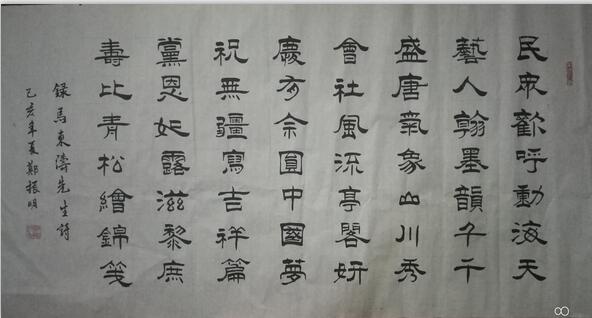 民眾歡呼動海天
藝人翰墨韻千千
盛唐氣象山川秀
會社風流亭閣妍
慶有余圓中國夢
祝無疆寫吉祥篇
黨恩如露滋黎庶
壽比青松繪錦箋
録馬東濤先生詩
乙亥年夏鄭振明